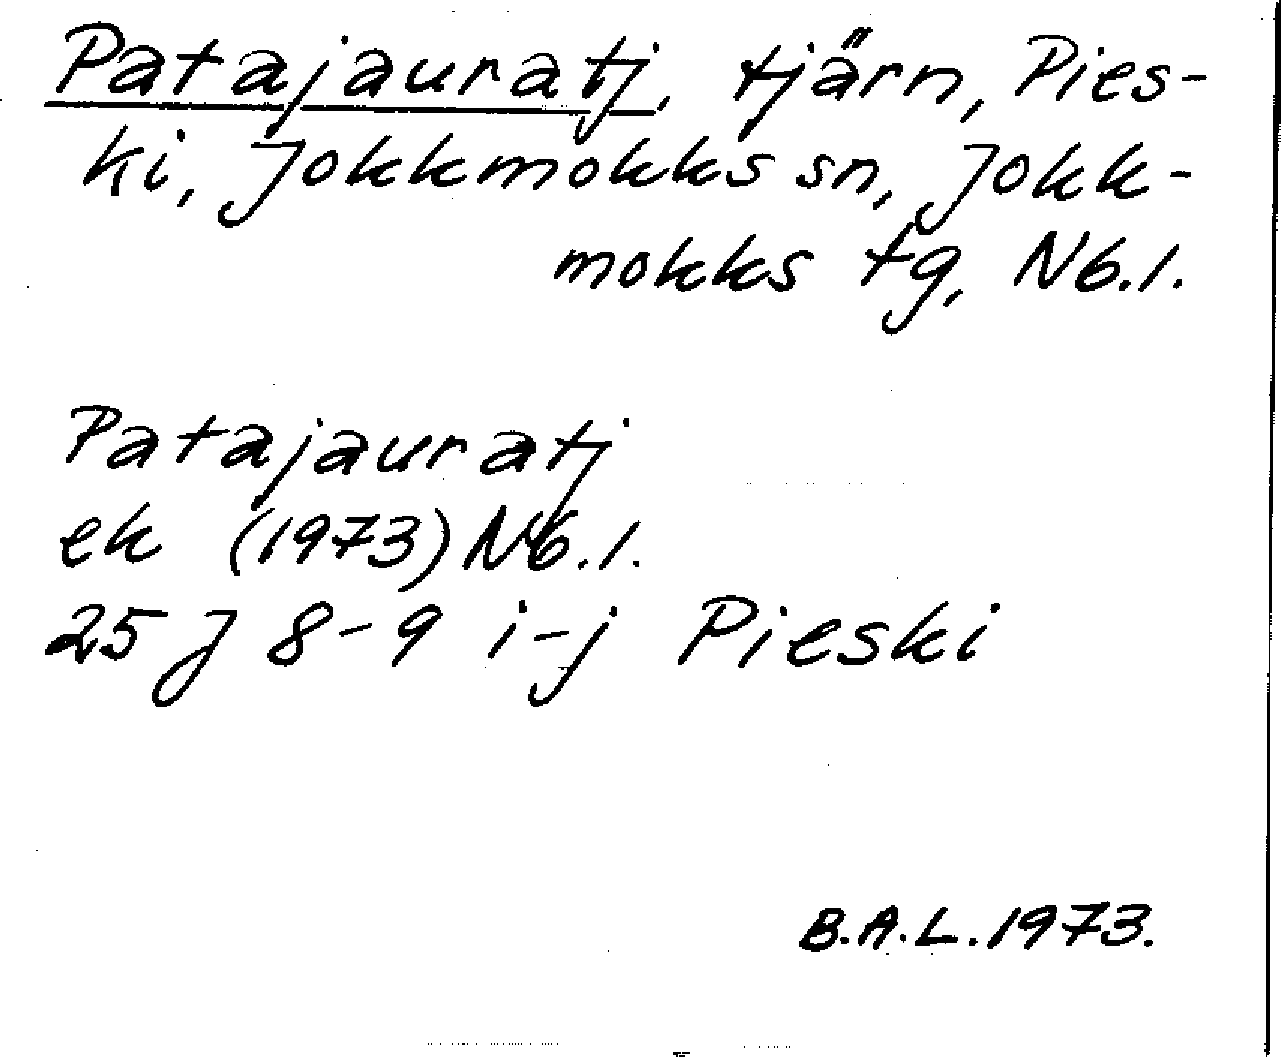 Patajauratj, tjärn, Pies-
ki, Jokkmokks sn, Jokk-
mokks tg, Nb.l.
Patajauratj
ek (1973) Nb.l.
25 J 8-9 i-j Pieski
B.A.L. 1973.